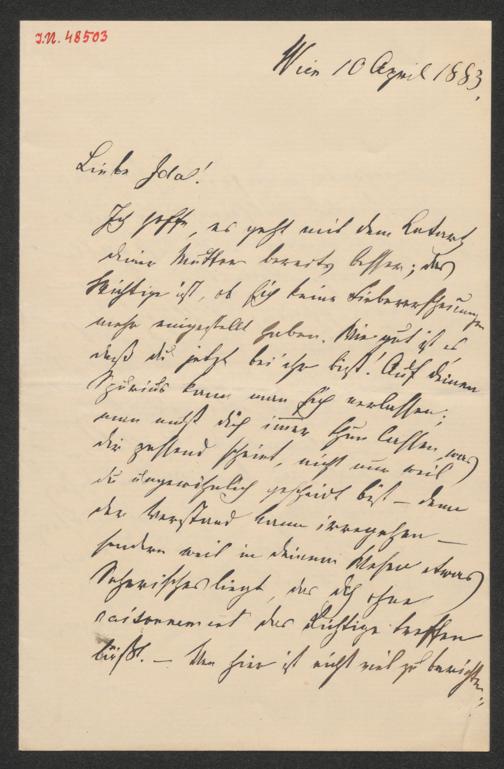 I.N. 48503
Wien 10 April 1883.
Liebe Ida!
Ich hoffe, es geht mit dem Catarh
deiner Mutter bereits besser; das
Wichtige ist, ob sich keine Fiebererscheinungen
mehr eingestellt haben. Wie gut ist es
daß du jetzt bei ihr bist! Auf deinen
Spürius kann man sich verlassen;
man muß dich immer thun lassen, was
dir passend scheint, nicht nur weil
du ungewöhnlich gescheidt bist – denn
der Verstand kann irregehen –
sondern weil in deinem Wesen etwas
Seherisches liegt, das dich ohne
raisonnement das Richtige treffen
läßt. – Von hier ist nicht viel zu berichten;